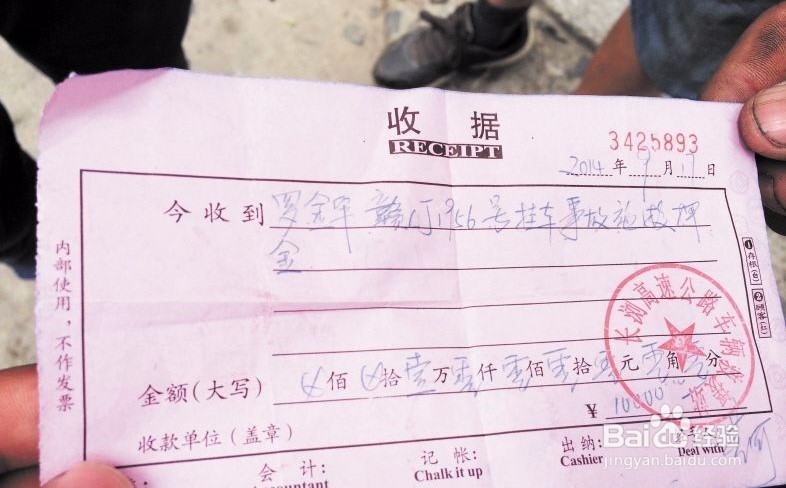 收 据
RECEIPT
3425893
2014 年 9 月 17 日
今收到 罗金军 赣 956号挂车事故施救押
金
内部使用，不作发票
①存根(白)
②顾客(红)
长浏高速公路车辆
金额(大写) 佰 拾 壹 万 零 仟 零 佰 零 拾 零 元 零 角 分
¥ 10000
收款单位(盖章)
会 计:
Accountant
记 帐:
Chalk it up
出 纳:
Cashier
Deal with
Baidu 经验
jingyan.baidu.com